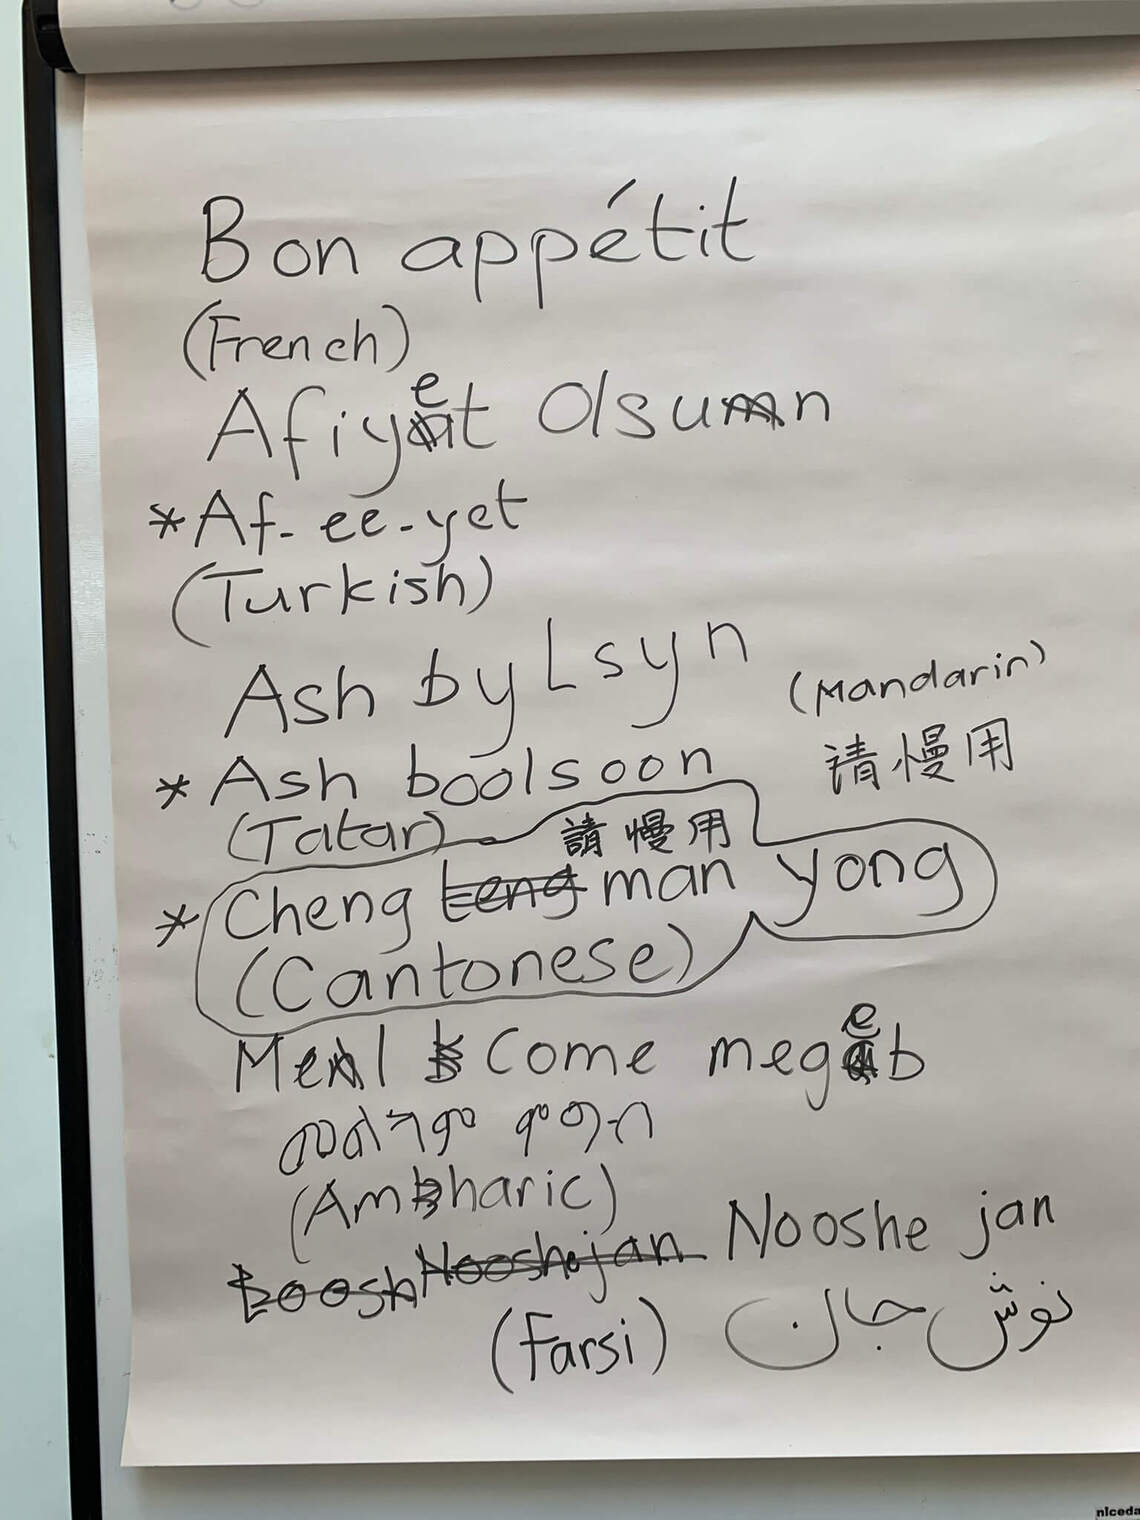 Bon appétit
(French)
Afiyet Olsun
*Af-ee-yet
(Turkish)
Ash byLsyn
(Mandarin)
请慢用
*Ash boolsoon
(Tatar)
請慢用
*Cheng teng man yong
(Cantonese)
Melkome megeb
መልካም ምግብ
(Amharic)
Toosh Nooshejan Nooshe jan
(Farsi) نوش جان
niceda